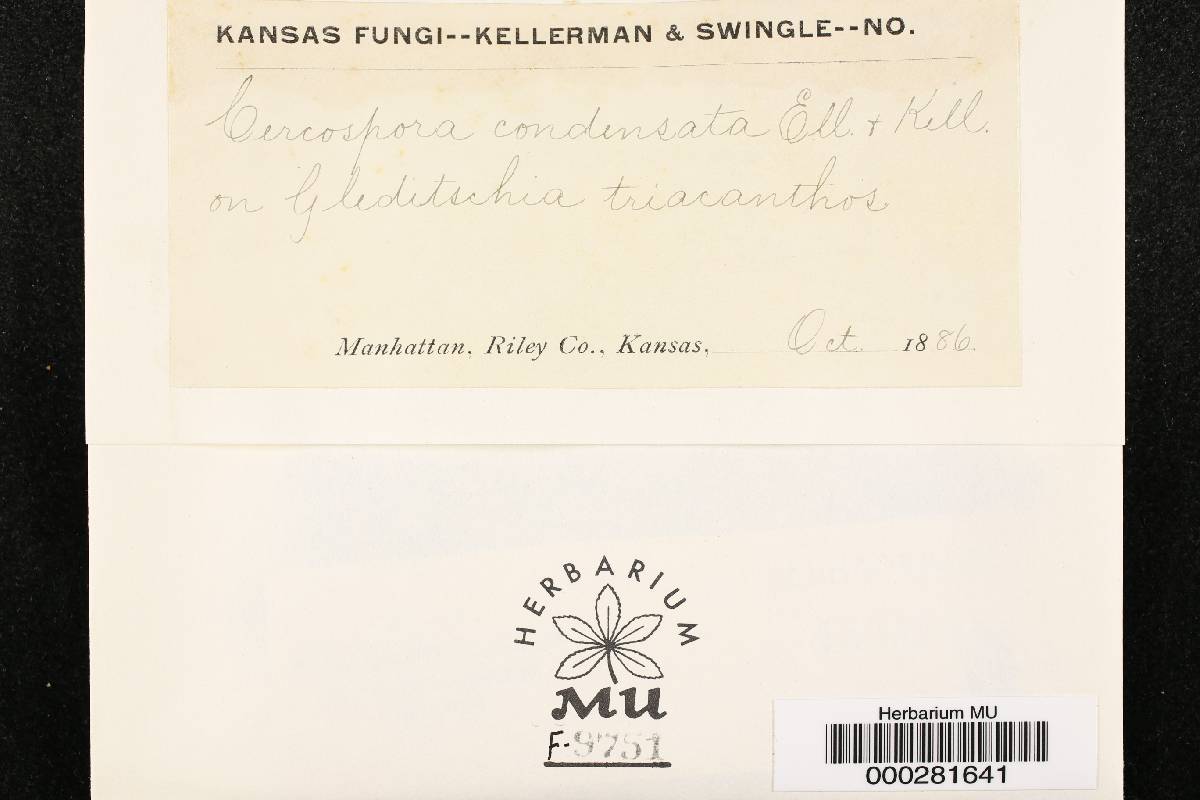 KANSAS FUNGI--KELLERMAN & SWINGLE--NO.
Cercospora condensata Ell. + Kell.
on Gleditschia triacanthos
Manhattan, Riley Co., Kansas, Oct. 1886.
HERBARIUM
MU
F-9751
Herbarium MU
000281641